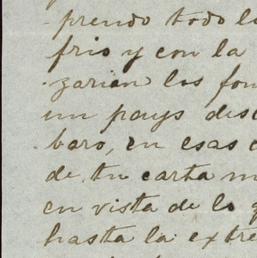 prendo todo lo
frio y con la
zarian los fon
un pays des
baro, en esas
de tu carta m
en vista de lo q
hasta la extre